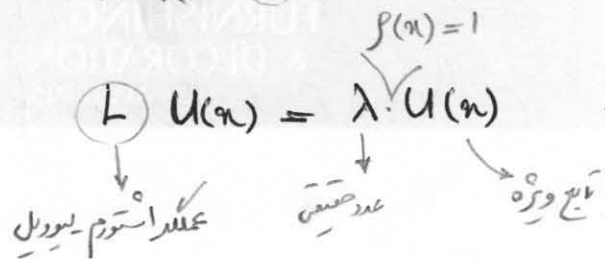 ρ(x) = 1
L U(x) = λ . U(x)
عملگر اشتورم - لیوویل عدد حقیقی تابع ویژه